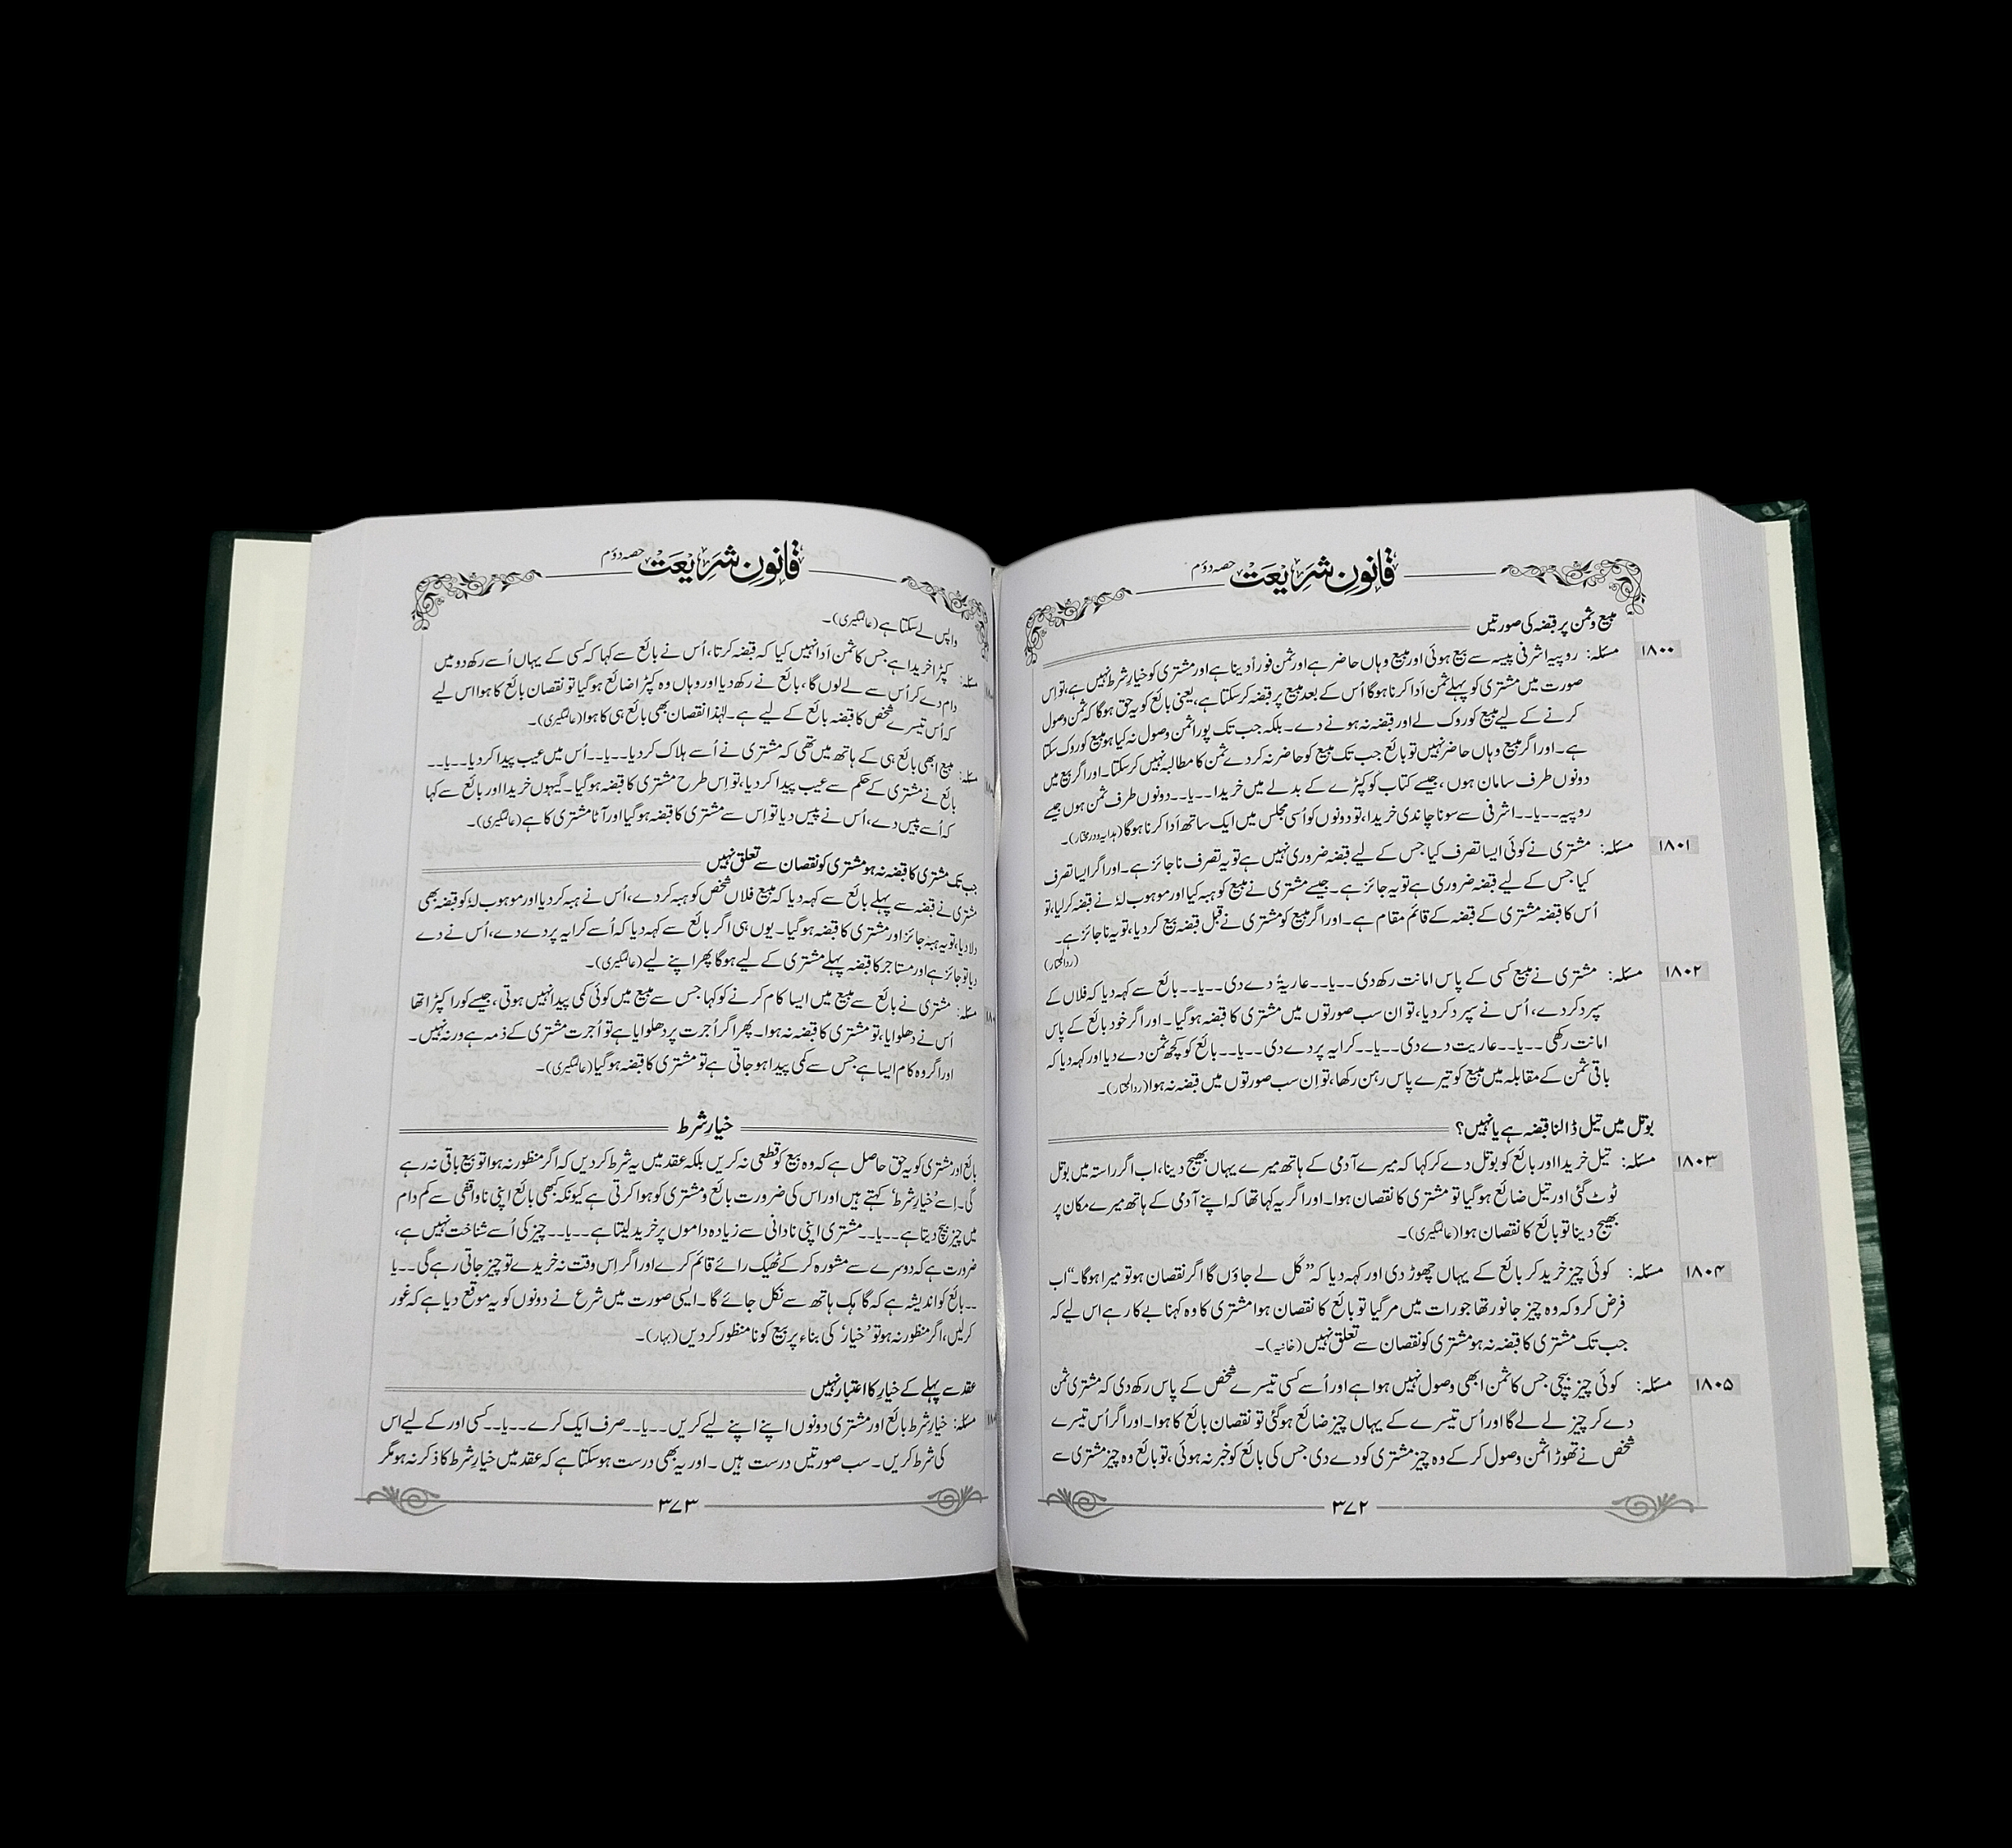 قانونِ شَرِیعَت حصہ دوم
مبیع و ثمن پر قبضہ کی صورتیں
۱۸۰۰ مسئلہ: روپیہ اشرفی پیسہ سے بیع ہوئی اور مبیع وہاں حاضر ہے اور ثمن فوراً دینا ہے اور مشتری کو خیارِ شرط نہیں ہے، تو اِس
صورت میں مشتری کو پہلے ثمن اَدا کرنا ہوگا اُس کے بعد مبیع پر قبضہ کر سکتا ہے، یعنی بائع کو یہ حق ہوگا کہ ثمن وصول
کرنے کے لیے مبیع کو روک لے اور قبضہ نہ ہونے دے۔ بلکہ جب تک پورا ثمن وصول نہ کیا ہو مبیع کو روک سکتا
ہے۔ اور اگر مبیع وہاں حاضر نہیں تو بائع جب تک مبیع کو حاضر نہ کر دے ثمن کا مطالبہ نہیں کر سکتا۔ اور اگر بیع میں
دونوں طرف سامان ہوں، جیسے کتاب کو کپڑے کے بدلے میں خریدا۔۔یا۔۔دونوں طرف ثمن ہوں جیسے
روپیہ۔۔یا۔۔اشرفی سے سونا چاندی خریدا، تو دونوں کو اُسی مجلس میں ایک ساتھ اَدا کرنا ہوگا (ہدایہ و درمختار)۔
۱۸۰۱ مسئلہ: مشتری نے کوئی ایسا تصرف کیا جس کے لیے قبضہ ضروری نہیں ہے تو یہ تصرف ناجائز ہے۔ اور اگر ایسا تصرف
کیا جس کے لیے قبضہ ضروری ہے تو یہ جائز ہے۔ جیسے مشتری نے مبیع کو ہبہ کیا اور موہوب لہٗ نے قبضہ کر لیا، تو
اُس کا قبضہ مشتری کے قبضہ کے قائم مقام ہے۔ اور اگر مبیع کو مشتری نے قبل قبضہ بیع کر دیا، تو یہ ناجائز ہے۔
(ردالمحتار)
۱۸۰۲ مسئلہ: مشتری نے مبیع کسی کے پاس امانت رکھ دی۔۔یا۔۔عاریۃً دے دی۔۔یا۔۔بائع سے کہہ دیا کہ فلاں کے
سپرد کر دے، اُس نے سپرد کر دیا، تو ان سب صورتوں میں مشتری کا قبضہ ہو گیا۔ اور اگر خود بائع کے پاس
امانت رکھی۔۔یا۔۔عاریت دے دی۔۔یا۔۔کرایہ پر دے دی۔۔یا۔۔بائع کو کچھ ثمن دے دیا اور کہہ دیا کہ
باقی ثمن کے مقابلہ میں مبیع کو تیرے پاس رہن رکھا، تو اِن سب صورتوں میں قبضہ نہ ہوا (ردالمحتار)۔
بوتل میں تیل ڈالنا قبضہ ہے یا نہیں؟
۱۸۰۳ مسئلہ: تیل خریدا اور بائع کو بوتل دے کر کہا کہ میرے آدمی کے ہاتھ میرے یہاں بھیج دینا، اب اگر راستہ میں بوتل
ٹوٹ گئی اور تیل ضائع ہو گیا تو مشتری کا نقصان ہوا۔ اور اگر یہ کہا تھا کہ اپنے آدمی کے ہاتھ میرے مکان پر
بھیج دینا تو بائع کا نقصان ہوا (عالمگیری)۔
۱۸۰۴ مسئلہ: کوئی چیز خرید کر بائع کے یہاں چھوڑ دی اور کہہ دیا کہ ”کَل لے جاؤں گا اگر نقصان ہو تو میرا ہوگا۔“ اب
فرض کرو کہ وہ چیز جانور تھا جو رات میں مر گیا تو بائع کا نقصان ہوا مشتری کا وہ کہنا بے کار ہے اس لیے کہ
جب تک مشتری کا قبضہ نہ ہو مشتری کو نقصان سے تعلق نہیں (خانیہ)۔
۱۸۰۵ مسئلہ: کوئی چیز بیچی جس کا ثمن ابھی وصول نہیں ہوا ہے اور اُسے کسی تیسرے شخص کے پاس رکھ دی کہ مشتری ثمن
دے کر چیز لے لے گا اور اُس تیسرے کے یہاں چیز ضائع ہو گئی تو نقصان بائع کا ہوا۔ اور اگر اُس تیسرے
شخص نے تھوڑا ثمن وصول کر کے وہ چیز مشتری کو دے دی جس کی بائع کو خبر نہ ہوئی، تو بائع وہ چیز مشتری سے
۳۷۲
قانونِ شَرِیعَت حصہ دوم
واپس لے سکتا ہے (عالمگیری)۔
مسئلہ: کپڑا خریدا ہے جس کا ثمن اَدا نہیں کیا کہ قبضہ کرتا، اُس نے بائع سے کہا کہ کسی کے یہاں اُسے رکھ دو میں
دام دے کر اُس سے لے لوں گا، بائع نے رکھ دیا اور وہاں وہ کپڑا ضائع ہو گیا تو نقصان بائع کا ہوا اس لیے
کہ اُس تیسرے شخص کا قبضہ بائع کے لیے ہے۔ لہٰذا نقصان بھی بائع ہی کا ہوا (عالمگیری)۔
مسئلہ: مبیع ابھی بائع ہی کے ہاتھ میں تھی کہ مشتری نے اُسے ہلاک کر دیا۔۔یا۔۔اُس میں عیب پیدا کر دیا۔۔یا۔۔
بائع نے مشتری کے حکم سے عیب پیدا کر دیا، تو اِس طرح مشتری کا قبضہ ہو گیا۔ گیہوں خریدا اور بائع سے کہا
کہ اُسے پیس دے، اُس نے پیس دیا تو اِس سے مشتری کا قبضہ ہو گیا اور آٹا مشتری کا ہے (عالمگیری)۔
جب تک مشتری کا قبضہ نہ ہو مشتری کو نقصان سے تعلق نہیں
مشتری نے قبضہ سے پہلے بائع سے کہہ دیا کہ مبیع فلاں شخص کو ہبہ کر دے، اُس نے ہبہ کر دیا اور موہوب لہٗ کو قبضہ بھی
دلا دیا، تو یہ ہبہ جائز اور مشتری کا قبضہ ہو گیا۔ یوں ہی اگر بائع سے کہہ دیا کہ اُسے کرایہ پر دے دے، اُس نے دے
دیا تو جائز ہے اور مستاجر کا قبضہ پہلے مشتری کے لیے ہوگا پھر اپنے لیے (عالمگیری)۔
مسئلہ: مشتری نے بائع سے مبیع میں ایسا کام کرنے کو کہا جس سے مبیع میں کوئی کمی پیدا نہیں ہوتی، جیسے کورا کپڑا تھا
اُس نے دھلوایا، تو مشتری کا قبضہ نہ ہوا۔ پھر اگر اُجرت پر دھلوایا ہے تو اُجرت مشتری کے ذمہ ہے ورنہ نہیں۔
اور اگر وہ کام ایسا ہے جس سے کمی پیدا ہو جاتی ہے تو مشتری کا قبضہ ہو گیا (عالمگیری)۔
خیارِ شرط
بائع اور مشتری کو یہ حق حاصل ہے کہ وہ بیع کو قطعی نہ کریں بلکہ عقد میں یہ شرط کر دیں کہ اگر منظور نہ ہوا تو بیع باقی نہ رہے
گی۔ اِسے ’خیارِ شرط‘ کہتے ہیں اور اس کی ضرورت بائع و مشتری کو ہوا کرتی ہے کیونکہ کبھی بائع اپنی ناواقفی سے کم دام
میں چیز بیچ دیتا ہے۔۔یا۔۔مشتری اپنی نادانی سے زیادہ داموں پر خرید لیتا ہے۔۔یا۔۔چیز کی اُسے شناخت نہیں ہے،
ضرورت ہے کہ دوسرے سے مشورہ کر کے ٹھیک رائے قائم کرے اور اگر اِس وقت نہ خریدے تو چیز جاتی رہے گی۔۔یا
۔۔بائع کو اندیشہ ہے کہ گاہک ہاتھ سے نکل جائے گا۔ ایسی صورت میں شرع نے دونوں کو یہ موقع دیا ہے کہ غور
کر لیں، اگر منظور نہ ہو تو ’خیار‘ کی بناء پر بیع کو نامنظور کر دیں (بہار)۔
عقد سے پہلے کے خیار کا اعتبار نہیں
مسئلہ: خیارِ شرط بائع اور مشتری دونوں اپنے اپنے لیے کریں۔۔یا۔۔صرف ایک کرے۔۔یا۔۔کسی اور کے لیے اس
کی شرط کریں۔ سب صورتیں درست ہیں۔ اور یہ بھی درست ہو سکتا ہے کہ عقد میں خیارِ شرط کا ذکر نہ ہو مگر
۳۷۳